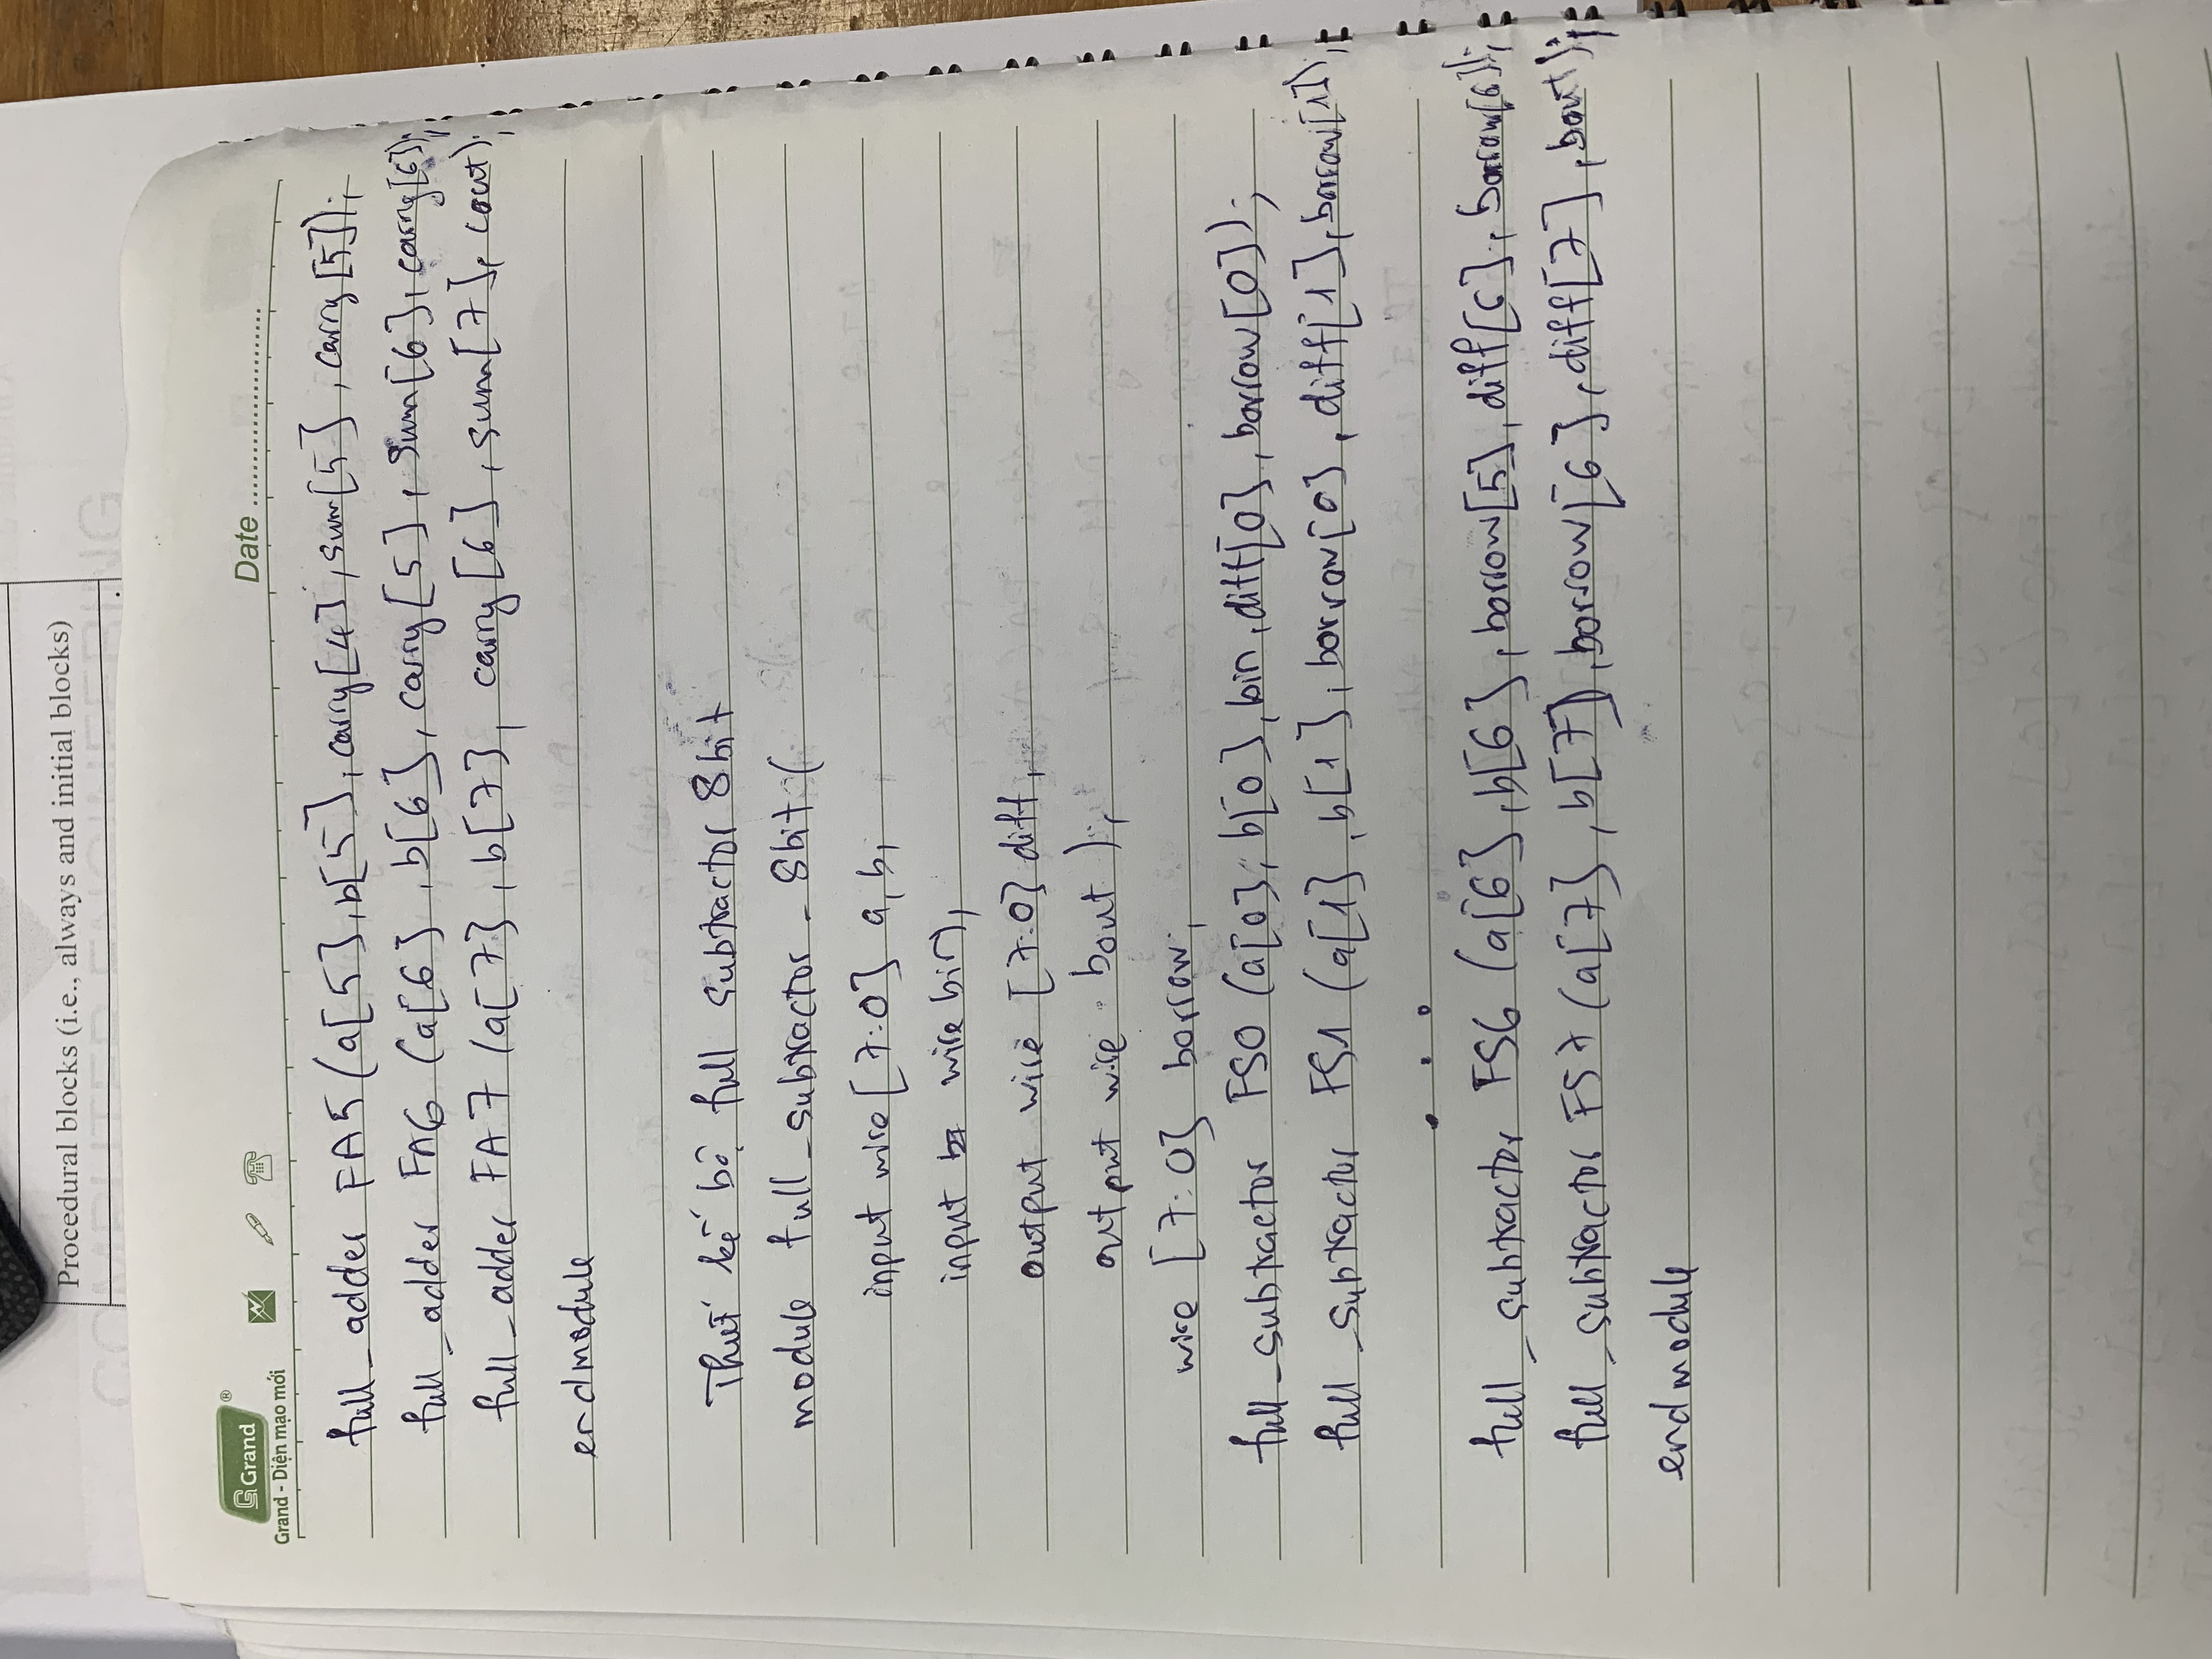 Procedural blocks (i.e., always and initial blocks)
COMPUTER ENGINEERING
Grand ®
Grand - Diện mạo mới
Date
full_adder FA5 (a[5], b[5], carry[4], sum[5], carry[5]);
full_adder FA6 (a[6], b[6], carry[5], sum[6], carry[6]);
full_adder FA7 (a[7], b[7], carry[6], sum[7], cout);
endmodule
Thiết kế bộ full subtractor 8bit
module full_subtractor_8bit (
input wire [7:0] a, b,
input wire bin,
output wire [7:0] diff,
output wire bout );
wire [7:0] borrow;
full_subtractor FS0 (a[0], b[0], bin, diff[0], borrow[0]);
full_subtractor FS1 (a[1], b[1], borrow[0], diff[1], borrow[1]);
...
full_subtractor FS6 (a[6], b[6], borrow[5], diff[6], borrow[6]);
full_subtractor FS7 (a[7], b[7], borrow[6], diff[7], bout);
endmodule